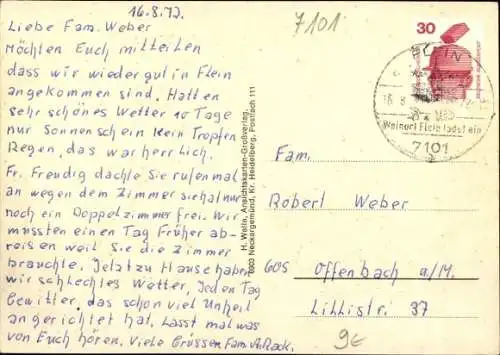 16.8.72.
7101
Liebe Fam. Weber
Möchten Euch mitteilen
dass wir wieder gut in Flein
angekommen sind. Hatten
sehr schönes Wetter 10 Tage
nur Sonnenschein kein Tropfen
Regen, das war herrlich.
Fr. Freudig dachte Sie rufen mal
an wegen dem Zimmer sie hat nur
noch ein Doppelzimmer frei. Wir
mussten einen Tag Früher ab-
reisen weil Sie die Zimmer
brauchte. Jetzt zu Hause haben
wir schlechtes Wetter, Jeden Tag
Gewitter, das schon viel Unheil
angerichtet hat. Lasst mal was
von Euch hören. Viele Grüssen Fam.
H. Wella, Ansichtskarten-Großverlag,
6903 Neckargemünd, Kr. Heidelberg, Postfach 111
30
FLEIN
Weinort Flein ladet ein
7101
Fam.
Robert Weber
605 Offenbach a/M.
Lillistr. 37
9€